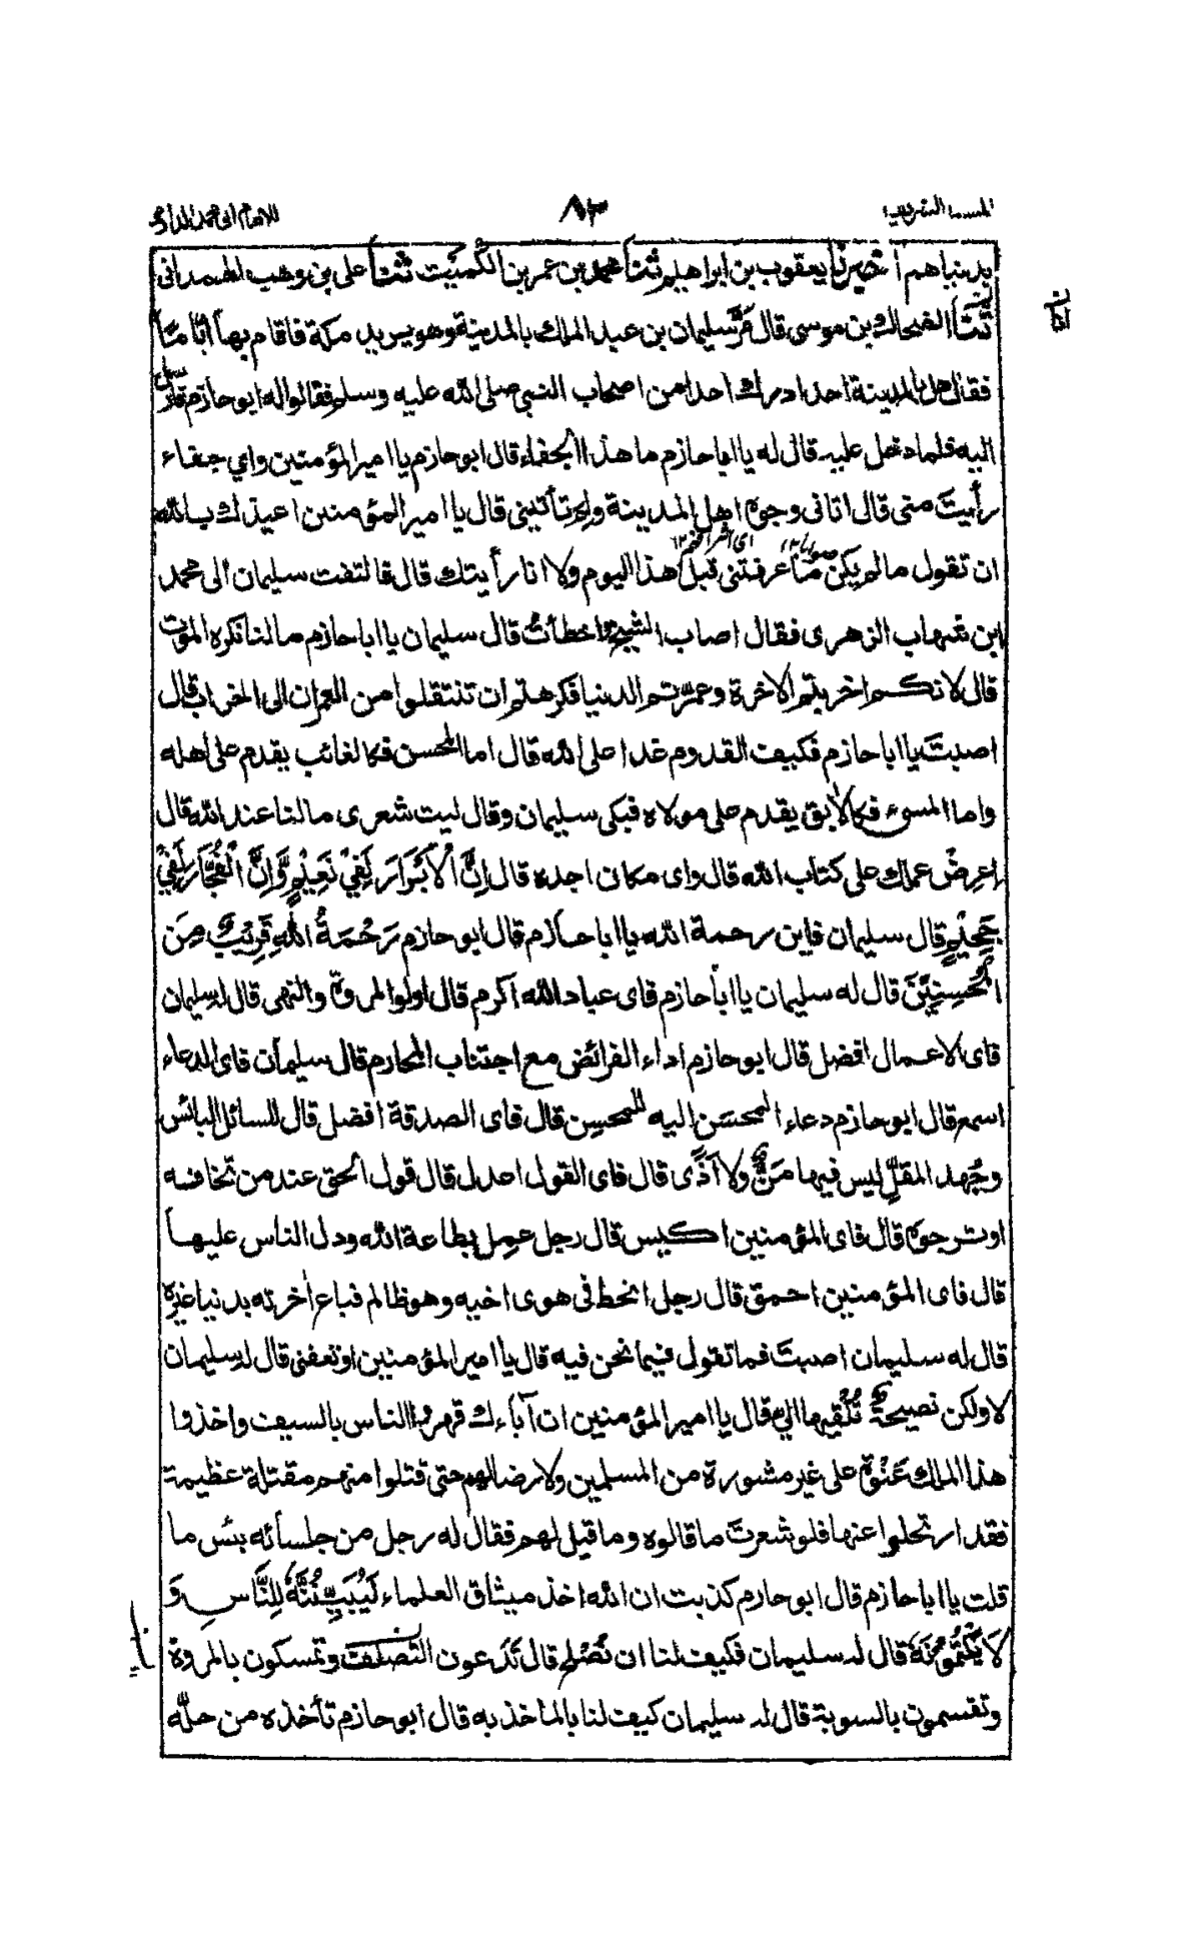 المسند الشريف
٨٣
للامام ابى محمد الدارمى
بدينياهم اخبرنا يعقوب بن ابراهيم ثنا محمد بن عمر بن الكُمَيْت ثنا على بن وهب الهمدانى
ثنا الضحاك بن موسى قال مَرَّ سليمان بن عبد الملك بالمدينة وهو يريد مكة فاقام بها ايّامًا
فقال هل بالمدينة احد ادرك احدا من اصحاب النبى صلى الله عليه وسلم فقالوا له ابو حازم فارسل
اليه فلما دخل عليه قال له يا ابا حازم ما هذا الجفاء قال ابو حازم يا امير المؤمنين واي جفاء
رأيتَ منى قال اتانى وجوه اهل المدينة ولم تأتينى قال يا امير المؤمنين اعيذك بالله
ان تقول ما لم يكن ما عرفتنى قبل هذا اليوم ولا انا رأيتك قال فالتفت سليمان الى محمد
ابن شهاب الزهرى فقال اصاب الشيخ واخطأتُ قال سليمان يا ابا حازم ما لنا نكره الموت
قال لانكم اخربتم الاخرة وعمّرتم الدنيا فكرهتم ان تنتقلوا من العمران الى الخراب قال
اصبتَ يا ابا حازم فكيف القدوم غدا على الله قال اما المحسن فكالغائب يقدم على اهله
واما المسوء فكالآبق يقدم على مولاه فبكى سليمان وقال ليت شعرى ما لنا عند الله قال
اعرِضْ عملك على كتاب الله قال واى مكان اجده قال اِنَّ الْاَبْرَارَ لَفِيْ نَعِيْمٍ وَّاِنَّ الْفُجَّارَ لَفِيْ
جَحِيْمٍ قال سليمان فاين رحمة الله يا ابا حازم قال ابو حازم رَحْمَةُ اللهِ قَرِيْبٌ مِنَ
الْمُحْسِنِيْنَ قال له سليمان يا ابا حازم فاى عباد الله اكرم قال اولوا المروة والنهى قال له سليمان
فاى الاعمال افضل قال ابو حازم اداء الفرائض مع اجتناب المحارم قال سليمان فاى الدعاء
اسمع قال ابو حازم دعاء المحسَن اليه للمحسِن قال فاى الصدقة افضل قال للسائل البائس
وجُهد المقلّ ليس فيها مَنٌّ ولا اَذًى قال فاى القول اعدل قال قول الحق عند من تخافه
او ترجوه قال فاى المؤمنين اكيس قال رجل عمِل بطاعة الله ودل الناس عليها
قال فاى المؤمنين احمق قال رجل انحط فى هوى اخيه وهو ظالم فباع اخرته بدنيا غيره
قال له سليمان اصبتَ فما تقول فيما نحن فيه قال يا امير المؤمنين اوتعفنى قال له سليمان
لا ولكن نصيحةٌ تُلْقيها الىّ قال يا امير المؤمنين ان آباءك قهروا الناس بالسيف واخذوا
هذا الملك عَنْوة على غير مشورة من المسلمين ولا رضا لهم حتى قتلوا منهم مقتلة عظيمة
فقد ارتحلوا عنها فلو شعرتَ ما قالوه وما قيل لهم فقال له رجل من جلسائه بئس ما
قلت يا ابا حازم قال ابو حازم كذبت ان الله اخذ ميثاق العلماء لَيُبَيِّنُنَّهٗ لِلنَّاسِ وَ
لَا يَكْتُمُوْنَهٗ قال له سليمان فكيف لنا ان نُصْلِح قال تَدَعون التصلف وتمسكون بالمروة
وتقسمون بالسوية قال له سليمان كيف لنا بالماخذ به قال ابو حازم تأخذه من حله